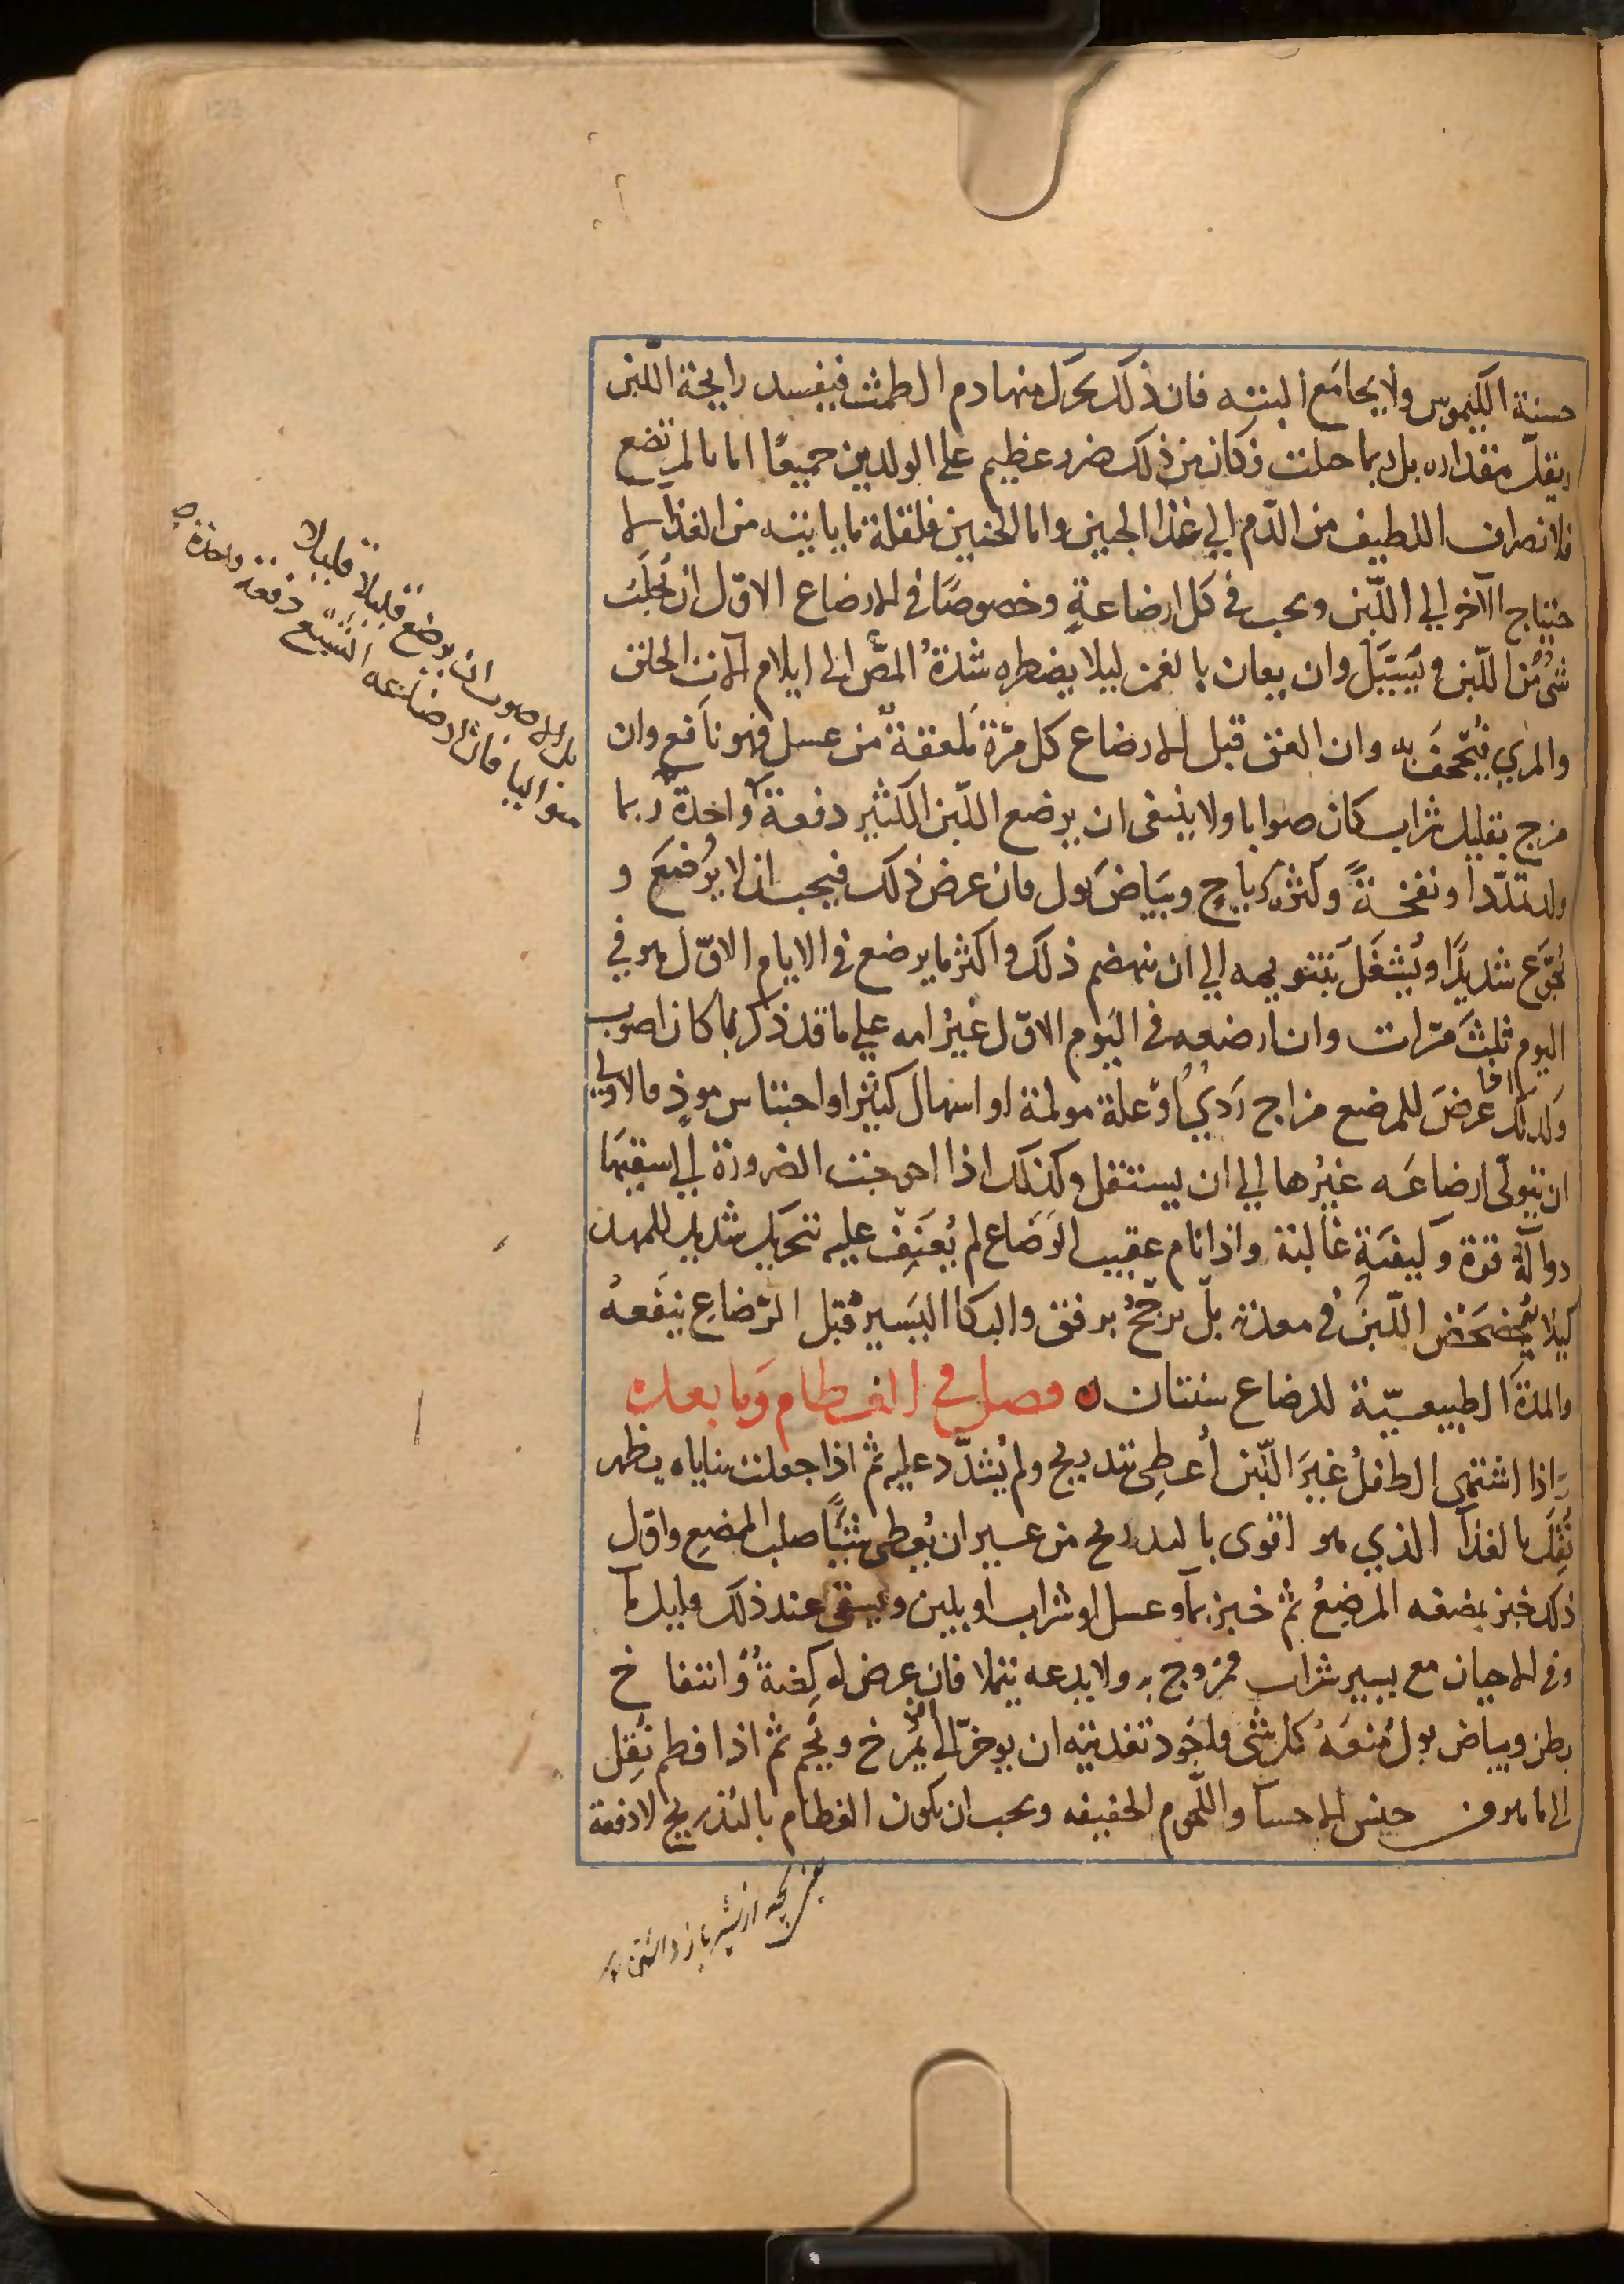 حسنة الكيموس ولا يجامع البتته فان ذلك يحرك منها دم الطمث فيفسد رايحة اللبن
ويقل مقداره بل ربما حملت وكان من ذلك ضرر عظيم على الولدين جميعًا اما بالمرتضع
فلانصراف اللطيف من الدم الي غذا الجنين واما الجنين فلقلة ما ياتيه من الغذآ
حتياج الآخر الي اللبن ويجب في كل ارضاعةٍ وخصوصًا في الارضاع الاوّل ان تُحلَبَ
شئ من اللبن ويُسَيَّل وان يعان بالغمز ليلا يضطره شدة المصّ الى ايلام الات الحلق
والمري فيُجحف به وان العق قبل الارضاع كل مرّة مَلعقةً من عسل فهو نافع وان
مزج بقليل شراب كان صوابا ولا ينبغى ان يرضع اللبن الكثير دفعةً واحدة ربما
ولد تمدّدا ونفخةً وكثرة رياح وبياض بول فان عرض ذلك فيجب ان لا يُرضَعَ و
يُجَوَّع شديدًا ويُشغَلَ بتنويمه الي ان ينهضم ذلك واكثر ما يرضع في الايام الاوّل هو في
اليوم ثلثَ مرّات وان ارضعه في اليوم الاوّل غيرُ امه علي ما قد ذكر بما كان اصوب
وكذلك اذا عرضَ للمرضع مزاج رَديٌ اَو علة مولمة او اسهال كثير او احتباس موذٍ فالاولي
ان يتولّى ارضاعَه غيرُها الي ان يستقل وكذلك اذا احوجت الضرورة الي اسقيَها
دوآله قوة وكيفيَةٍ غالبة واذا نام عقيب الرَضاع لم يُعنِف عليه بتحريك شديد للمهد
كيلا يُخضخَض اللبنُ في معدته بل يرجّحُ برفق والبكا اليَسير قبل الرّضاعِ يَنفَعهُ
والمدة الطبيعيّة للرضاع سنتان ه فصل في الفطام وَما بعده
واذا اشتهى الطفلُ غيرَ اللبن اُعطِى بتدريج ولم يُشدّد عليه ثم اذا جعلت ثناياه يظهر
نُقِلَ بالغذآ الذي هو اقوى بالتدريج من غير ان يُعطى شيئًا صلب الممضغ واوّل
ذلك خبز يمضغه المرضِعُ ثم خبز بمآ وعسل او شراب او بلبن ويسقى عند ذلك قليل مآ
وفي الاحيان مع يسير شراب ممزوج به ولا يدعه يتملا فان عرض له كِظةٌ وانتفاخ
بطن وبياض بول مُنعَهُ كل شئ واجُود تغذيته ان يوخر الي ان يُمرَخ ويُحِم ثم اذا فطم نُقِل
الى ما هو من جنس الاحسآ واللحوم الخفيفه ويجب ان يكون الفطام بالتدريج لا دفعة
بل الاصوب ان يرضع قليلا قليلا
متواليا فان ارضاعه الشبع دفعة واحدة
يعنى بچه از شير باز داشتن